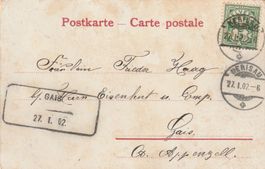 Postkarte - Carte postale
HERISAU
Fräulein Frieda Haag
p. Herrn Eisenhut u. Comp.
HERISAU
27.I.02.-6
GAIS
27. I. 02.
Gais
Ct. Appenzell.